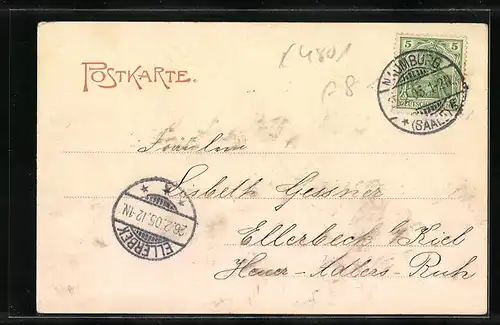 POSTKARTE.
5 5
NAUMBURG
*(SAALE)
Fräulein
Lisbeth Gessner
Ellerbeck b/Kiel
ELLERBEK
26.2.05.12-1N.